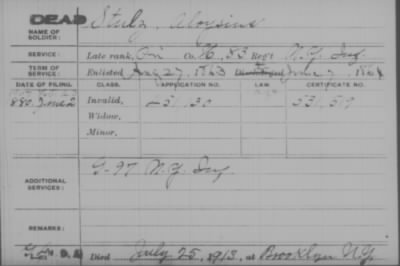 DEAD
NAME OF SOLDIER: Stulz, Aloysius
SERVICE: Late rank, Co. 83 Reg't N.Y. Inf
TERM OF SERVICE: Enlisted Aug 27, 1863 Discharged June 7, 1864
DATE OF FILING. CLASS. APPLICATION NO. LAW. CERTIFICATE NO.
1880 June 2 Invalid, 531,519
Widow,
Minor,
ADDITIONAL SERVICES: G-97 N.Y. Inf
REMARKS:
Died July 25, 1913, at Brooklyn N.Y.